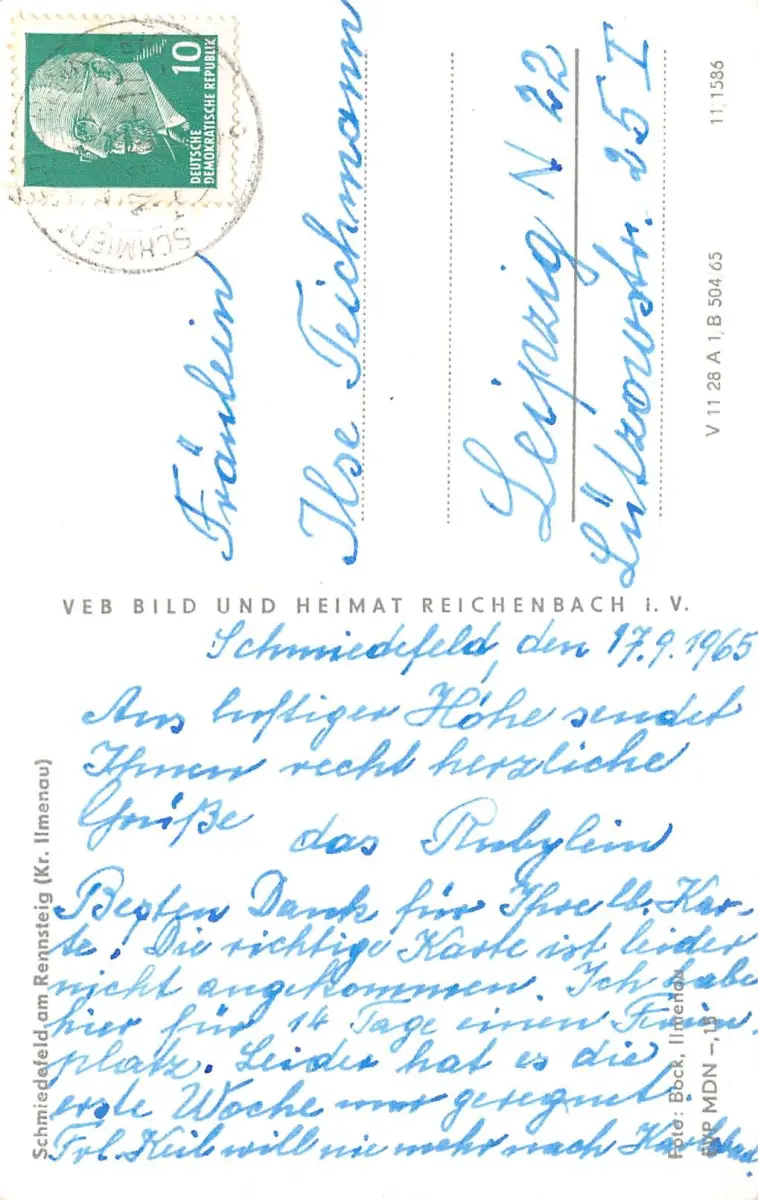 10
DEUTSCHE
DEMOKRATISCHE REPUBLIK
SCHMIEDE
Fräulein
Ilse Teichmann
Leipzig N 22
Lützowstr. 25 I
V 11 28 A 1, B 504/65 11/1586
VEB BILD UND HEIMAT REICHENBACH i. V.
Schmiedefeld, den 17.9.1965
Aus luftiger Höhe sendet
Ihnen recht herzliche
Grüße
das Rubylein
Besten Dank für Ihre lb. Kar-
te. Die richtige Karte ist leider
nicht angekommen. Ich habe
hier für 14 Tage einen Ferien-
platz. Leider hat es die
erste Woche nur geregnet.
Frl. Keil will nie mehr nach Karlsbad
Schmiedefeld am Rennsteig (Kr. Ilmenau)
Foto: Bock, Ilmenau
EVP MDN –,15